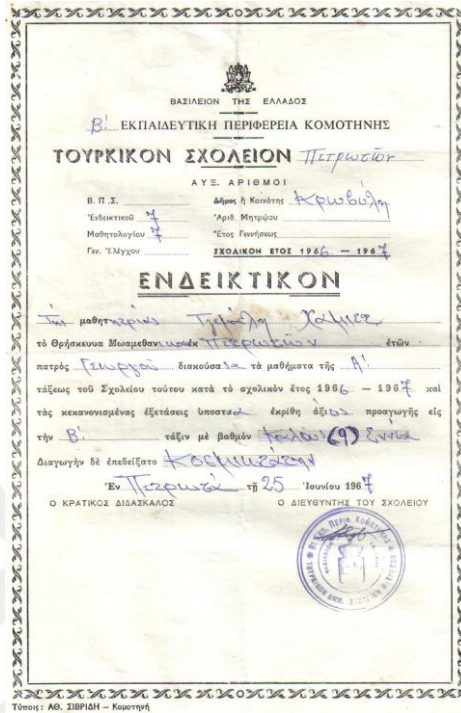 ΒΑΣΙΛΕΙΟΝ ΤΗΣ ΕΛΛΑΔΟΣ
Β' ΕΚΠΑΙΔΕΥΤΙΚΗ ΠΕΡΙΦΕΡΕΙΑ ΚΟΜΟΤΗΝΗΣ
ΤΟΥΡΚΙΚΟΝ ΣΧΟΛΕΙΟΝ Πετρωτῶν
ΑΥΞ. ΑΡΙΘΜΟΙ
Β. Π. Σ. Δῆμος ἢ Κοινότης
Ἐνδεικτικοῦ 7 Ἀριθ. Μητρώου
Μαθητολογίου 7 Ἔτος Γεννήσεως
Γεν. Ἐλέγχου ΣΧΟΛΙΚΟΝ ΕΤΟΣ 1966 — 1967
ΕΝΔΕΙΚΤΙΚΟΝ
Τῆς μαθητρίας
τὸ Θρήσκευμα Μωαμεθαν ἐκ Πετρωτῶν ἐτῶν
πατρὸς Γεωργοῦ διακούσασα τὰ μαθήματα τῆς Α'
τάξεως τοῦ Σχολείου τούτου κατὰ τὸ σχολικὸν ἔτος 1966 — 1967 καὶ
τὰς κεκανονισμένας ἐξετάσεις ὑποστᾶσα ἐκρίθη ἀξία προαγωγῆς εἰς
τὴν Β' τάξιν μὲ βαθμὸν (9) Ἐννέα
Διαγωγὴν δὲ ἐπεδείξατο Κοσμιωτάτην
Ἐν Πετρωτά τῇ 25 Ἰουνίου 1967
Ο ΚΡΑΤΙΚΟΣ ΔΙΔΑΣΚΑΛΟΣ Ο ΔΙΕΥΘΥΝΤΗΣ ΤΟΥ ΣΧΟΛΕΙΟΥ
Τύποις: ΑΘ. ΣΙΒΡΙΔΗ — Κομοτηνή